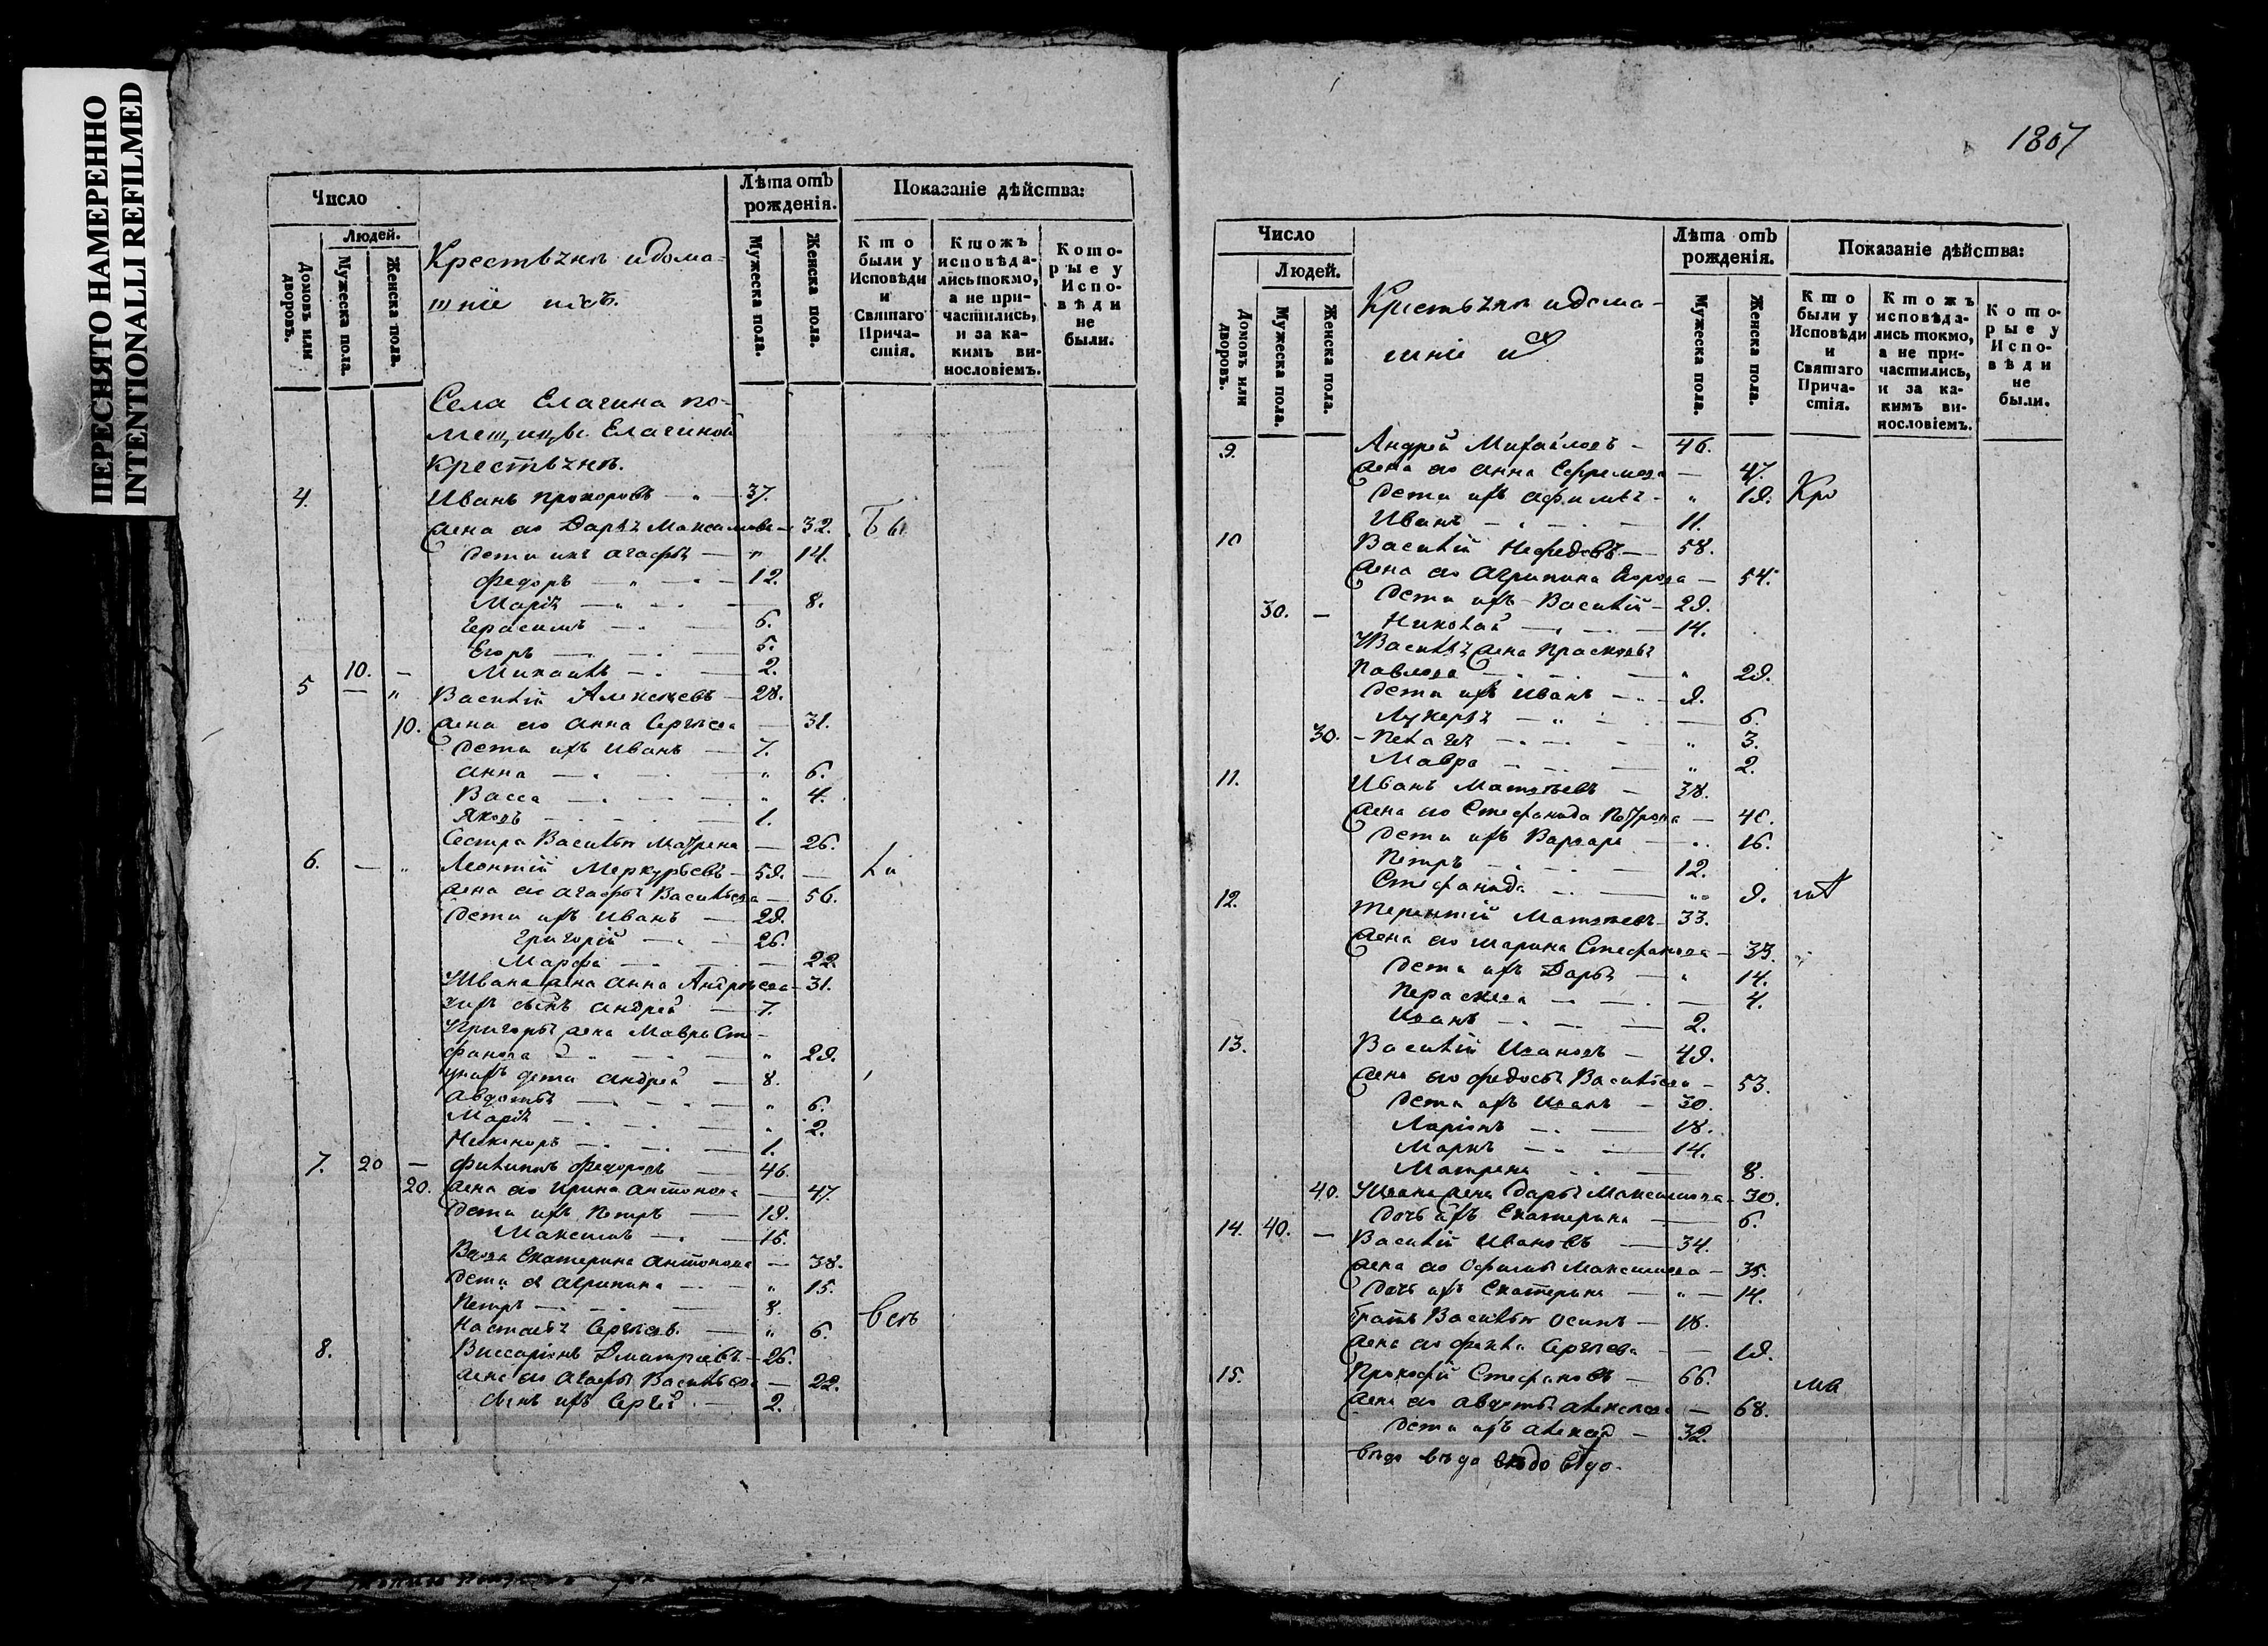 ПЕРЕСНЯТО НАМЕРЕННО
INTENTIONALLI REFILMED
Число
Людей.
Домовъ или дворовъ.
Мужеска пола.
Женска пола.
Крестьяня и дома-
шніе ихъ.
Лѣта отъ рожденія.
Мужеска пола.
Женска пола.
Показаніе дѣйства:
Кто были у Исповѣди и Святаго Причастія.
Ктожъ исповѣдались токмо, а не причастились, и за какимъ винословіемъ.
Которые у Исповѣди не были.
Села Елагина по-
мещицы Елагиной
Крестьяня.
4. Иванъ Прохоровъ 37.
жена ео Дарья Максимова 32. Бы
дети ихъ Агафья 14.
Федоръ 12.
Марія 8.
Герасимъ 6.
Егоръ 5.
10. Михаилъ 2.
5 Василій Алексеевъ 28.
10. жена ео Анна Сергѣева 31.
дети ихъ Иванъ 7.
Анна 6.
Васса 4.
Яковъ 1.
Сестра Василья Матрена 26.
6. Леонтій Меркурьевъ 59. ли
жена ео Агафья Васильева 56.
дети ихъ Иванъ 29.
Григорій 26.
Марфа 22
У Ивана жена Анна Андреева 31.
у ихъ сынъ Андрей 7.
У Григорья жена Мавра Сте-
фанова 29.
у нихъ дети Андрей 8.
Авдотья 6.
Марія 2.
Никаноръ 1.
7. 20 Филиппъ Федоровъ 46.
20. жена ео Ирина Антонова 47.
дети ихъ Петръ 19.
Максимъ 16.
Вдова Екатерина Антонова 38.
дети ея Агрипина 15.
Петръ 8.
Настасья Сергѣева 6. всѣ
8. Виссаріонъ Дмитріевъ 26.
жена ео Агафья Васильева 22.
сынъ ихъ Сергей 2.
1807
Число
Людей.
Домовъ или дворовъ.
Мужеска пола.
Женска пола.
Крестьяня и дома-
шніе их
Лѣта отъ рожденія.
Мужеска пола.
Женска пола.
Показаніе дѣйства:
Кто были у Исповѣди и Святаго Причастія.
Ктожъ исповѣдались токмо, а не причастились, и за какимъ винословіемъ.
Которые у Исповѣди не были.
9. Андрей Михайловъ 46.
жена ео Анна Ефремова 47.
дети ихъ Афимья 19. Кро
Иванъ 11.
10 Василій Нефедовъ 58.
жена ео Агрипина Егорова 54.
дети ихъ Василій 29.
30. Николай 14.
У Василья жена Прасковья
Павлова 29.
дети ихъ Иванъ 9.
Лукерья 6.
30. Пелагея 3.
Мавра 2.
11. Иванъ Матвѣевъ 38.
жена ео Стефанида Петрова
дети ихъ Варвара 16.
Петръ 12.
Стефанида 9.
12. Терентій Матвѣевъ 33.
жена ео Марина Стефанова
дети ихъ Дарья 14.
4.
Иванъ 2.
13. Василій Ивановъ 49.
жена ео Федосья Васильева 53.
дети ихъ Иванъ 30.
Ларіонъ 18.
Маркъ 14.
Матрена 8.
40. У Ивана жена Дарья Максимова 30.
дочь ихъ Екатерина 6.
14. 40. Василій Ивановъ 34.
жена ео Офимья Максимова 35.
дочь ихъ Екатерина 14.
братъ Василья Осипъ 18.
жена ео Фекла Сергѣева 19.
15. Прокофій Стефановъ 66. ма
жена ео Авдотья Алексеева 68.
дети ихъ Алексей 32.